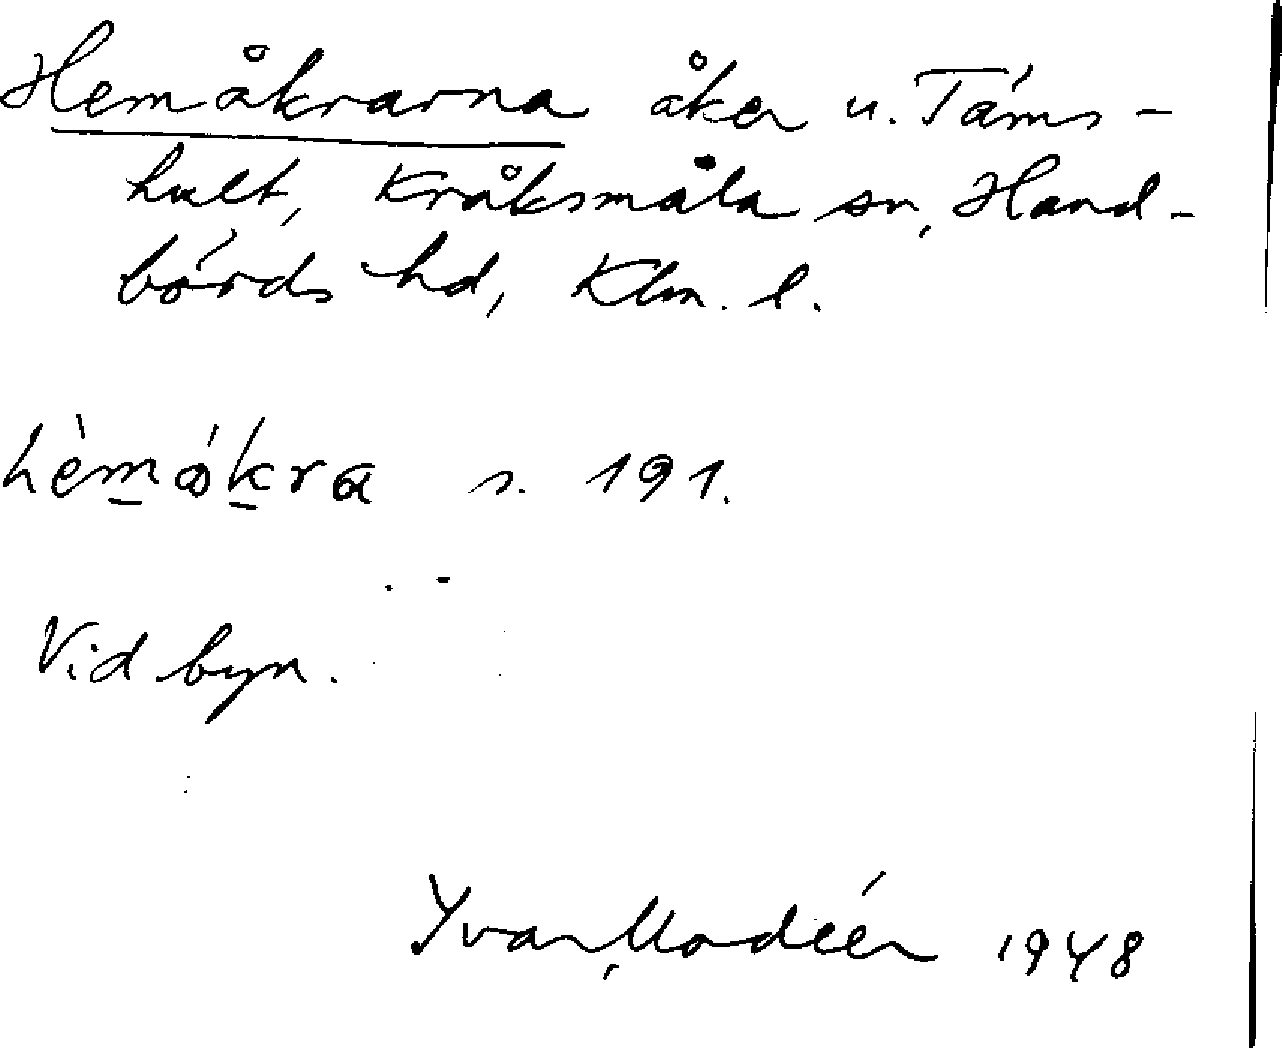 Hemåkrarna åker u. Táms-
hult, Kråksmåla sn, Hand-
börds hd, Klm. l.
hèmákra s. 191.
Vid byn.
Yvar Modéer 1948